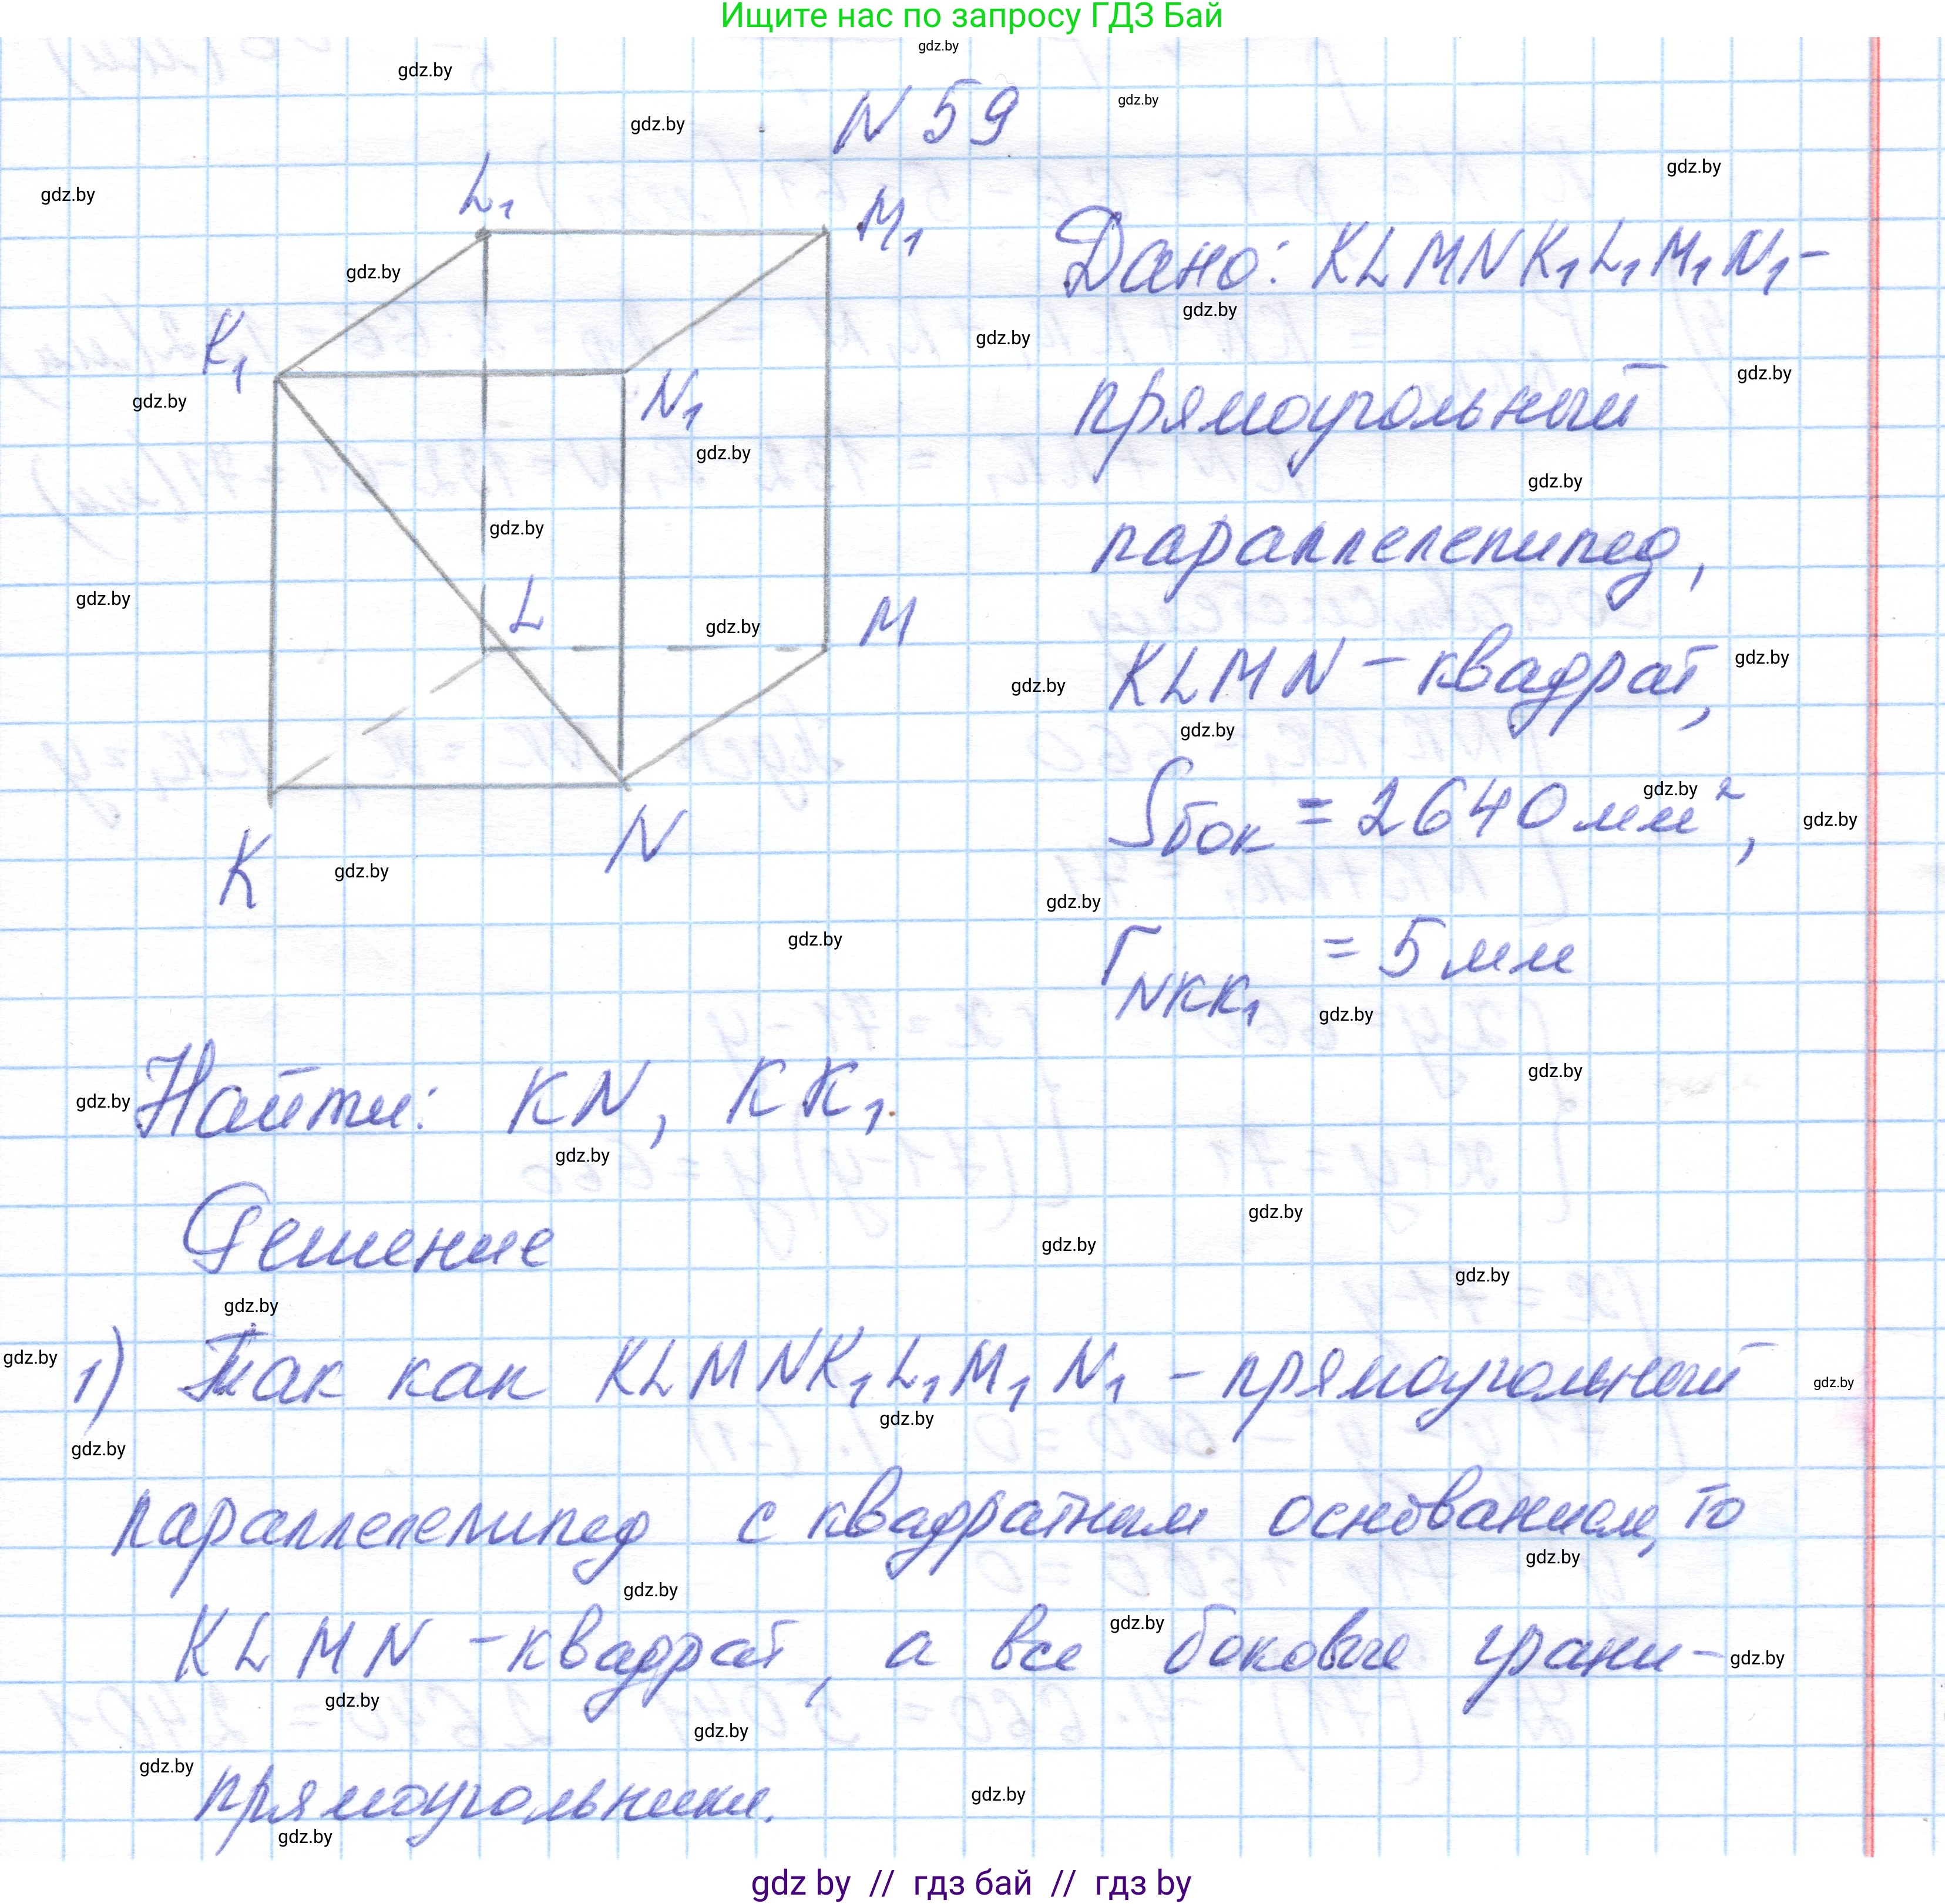 Ищите нас по запросу ГДЗ Бай
N 59
L₁
M₁
K₁
N₁
L
M
K
N
Дано: KLMNK₁L₁M₁N₁-
прямоугольный
параллелепипед,
KLMN - квадрат,
Sбок = 2640 мм²,
r NKK₁ = 5 мм
Найти: KN, KK₁.
Решение
1) Так как KLMNK₁L₁M₁N₁ - прямоугольный
параллелепипед с квадратным основанием, то
KLMN - квадрат, а все боковые грани-
прямоугольники.
gdz by // гдз бай // гдз by